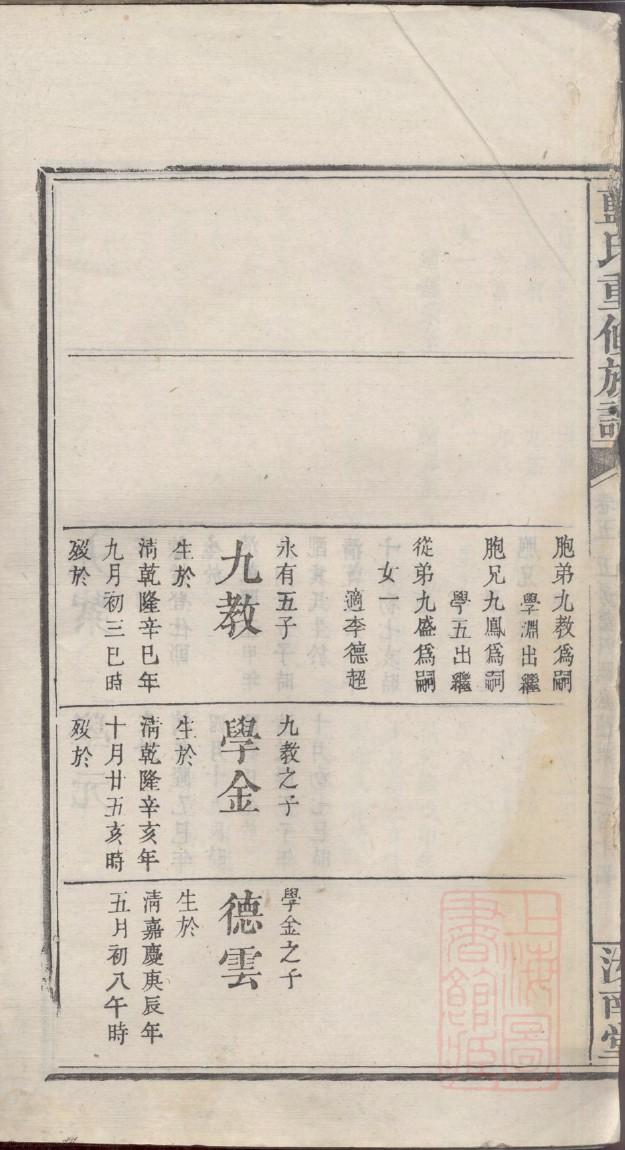 藍氏重修族譜
胞弟九教爲嗣
學淵出繼
胞兄九鳳爲嗣
學五出繼
從弟九盛爲嗣
女一
適李德超
永有五子
九教
生於
淸乾隆辛巳年
九月初三巳時
歿於
九教之子
學金
生於
淸乾隆辛亥年
十月廿五亥時
歿於
學金之子
德雲
生於
淸嘉慶庚辰年
五月初八午時
汝南堂
上海圖書館藏